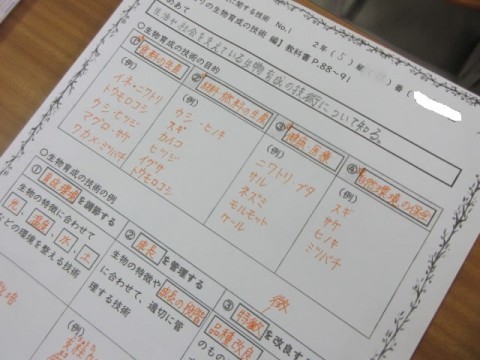 関する技術 No.1
2年(5)
の生物育成の技術 編】教科書P.88~91
めあて
生活や社会を支えている生物育成の技術について知る。
○生物育成の技術の目的
①食料の生産
(例)
イネ・ニワトリ
トウモロコシ
ウシ・ヒツジ
マグロ・サケ
ワカメ・ミツバチ
②材料・燃料の生産
(例)
ウシ・ヒノキ
スギ
カイコ
ヒツジ
イグサ
トウモロコシ
③健康・医療
(例)
ニワトリ ブタ
サル
ネズミ
モルモット
ケール
④自然環境の保全
(例)
スギ
サケ
ヒノキ
ミツバチ
○生物育成の技術の例
①育成環境を調節する
生物の特徴に合わせて
光、温度、水、土
などの環境を整える技術
(例)
②成長を管理する
生物の特徴や
成長の段階
に合わせて、適切に管
理する技術
(例)
徴
③特徴を改良する
品種改良
のもの